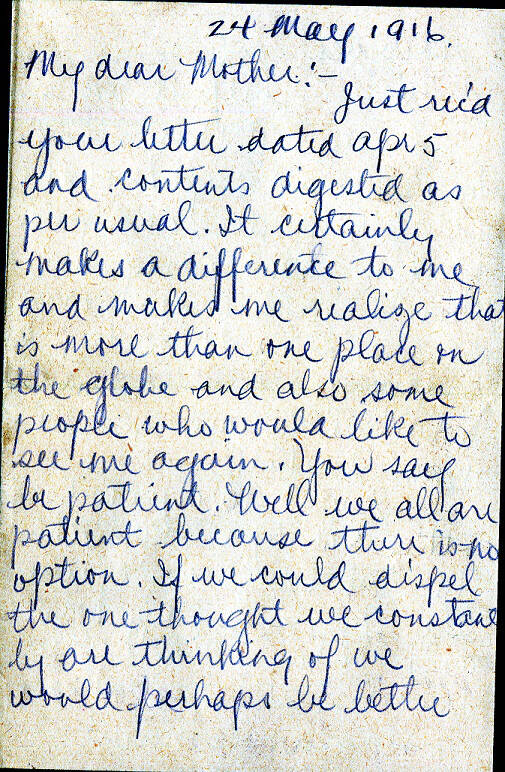 24 May 1916.
My dear Mother:-
Just rec'd
your letter dated apr 5
and contents digested as
per usual. It certainly
makes a difference to me
and makes me realize that
is more than one place on
the globe and also some
people who would like to
see me again. You say
be patient. Well we all are
patient because there is no
option. If we could dispel
the one thought we constant
ly are thinking of we
would perhaps be better